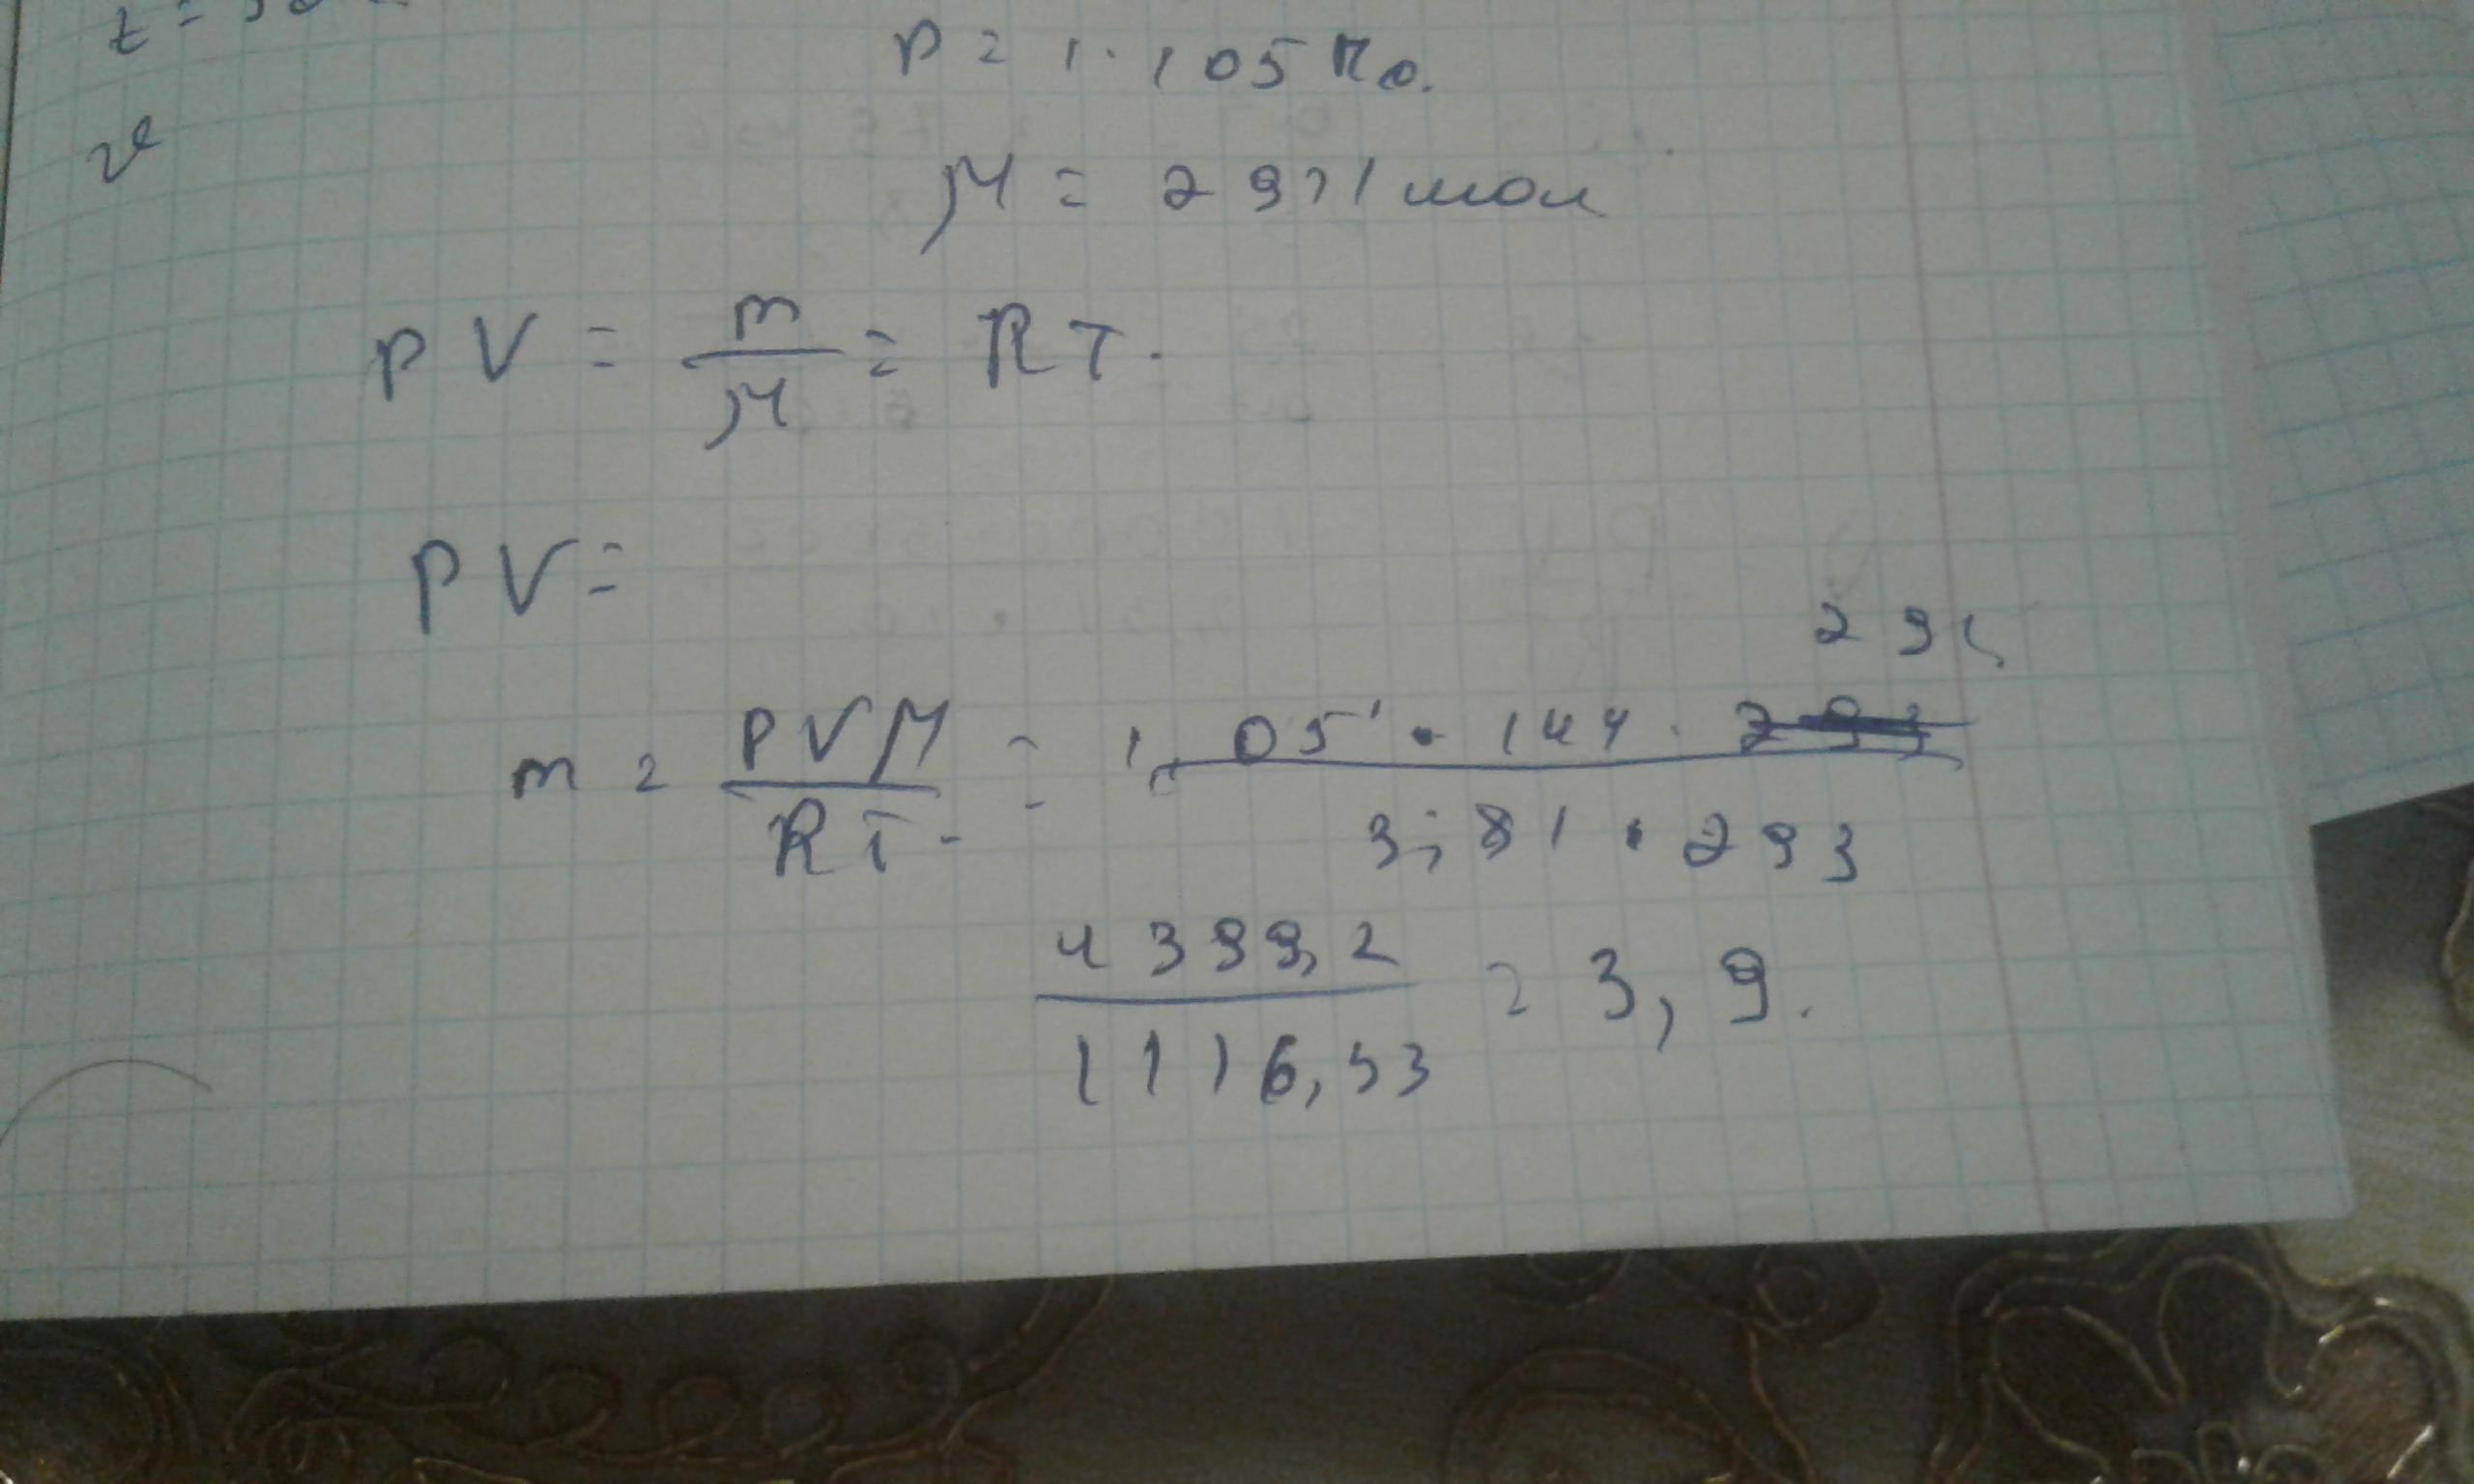 p = 1 · 105 Па.
μ = 29 г/мол
pV = m/μ = RT.
pV =
29 г
m = pVμ/RT = 1,05 · 144 · 293 / 3,81 · 293
4399,2 / 1116,53 = 3,9.